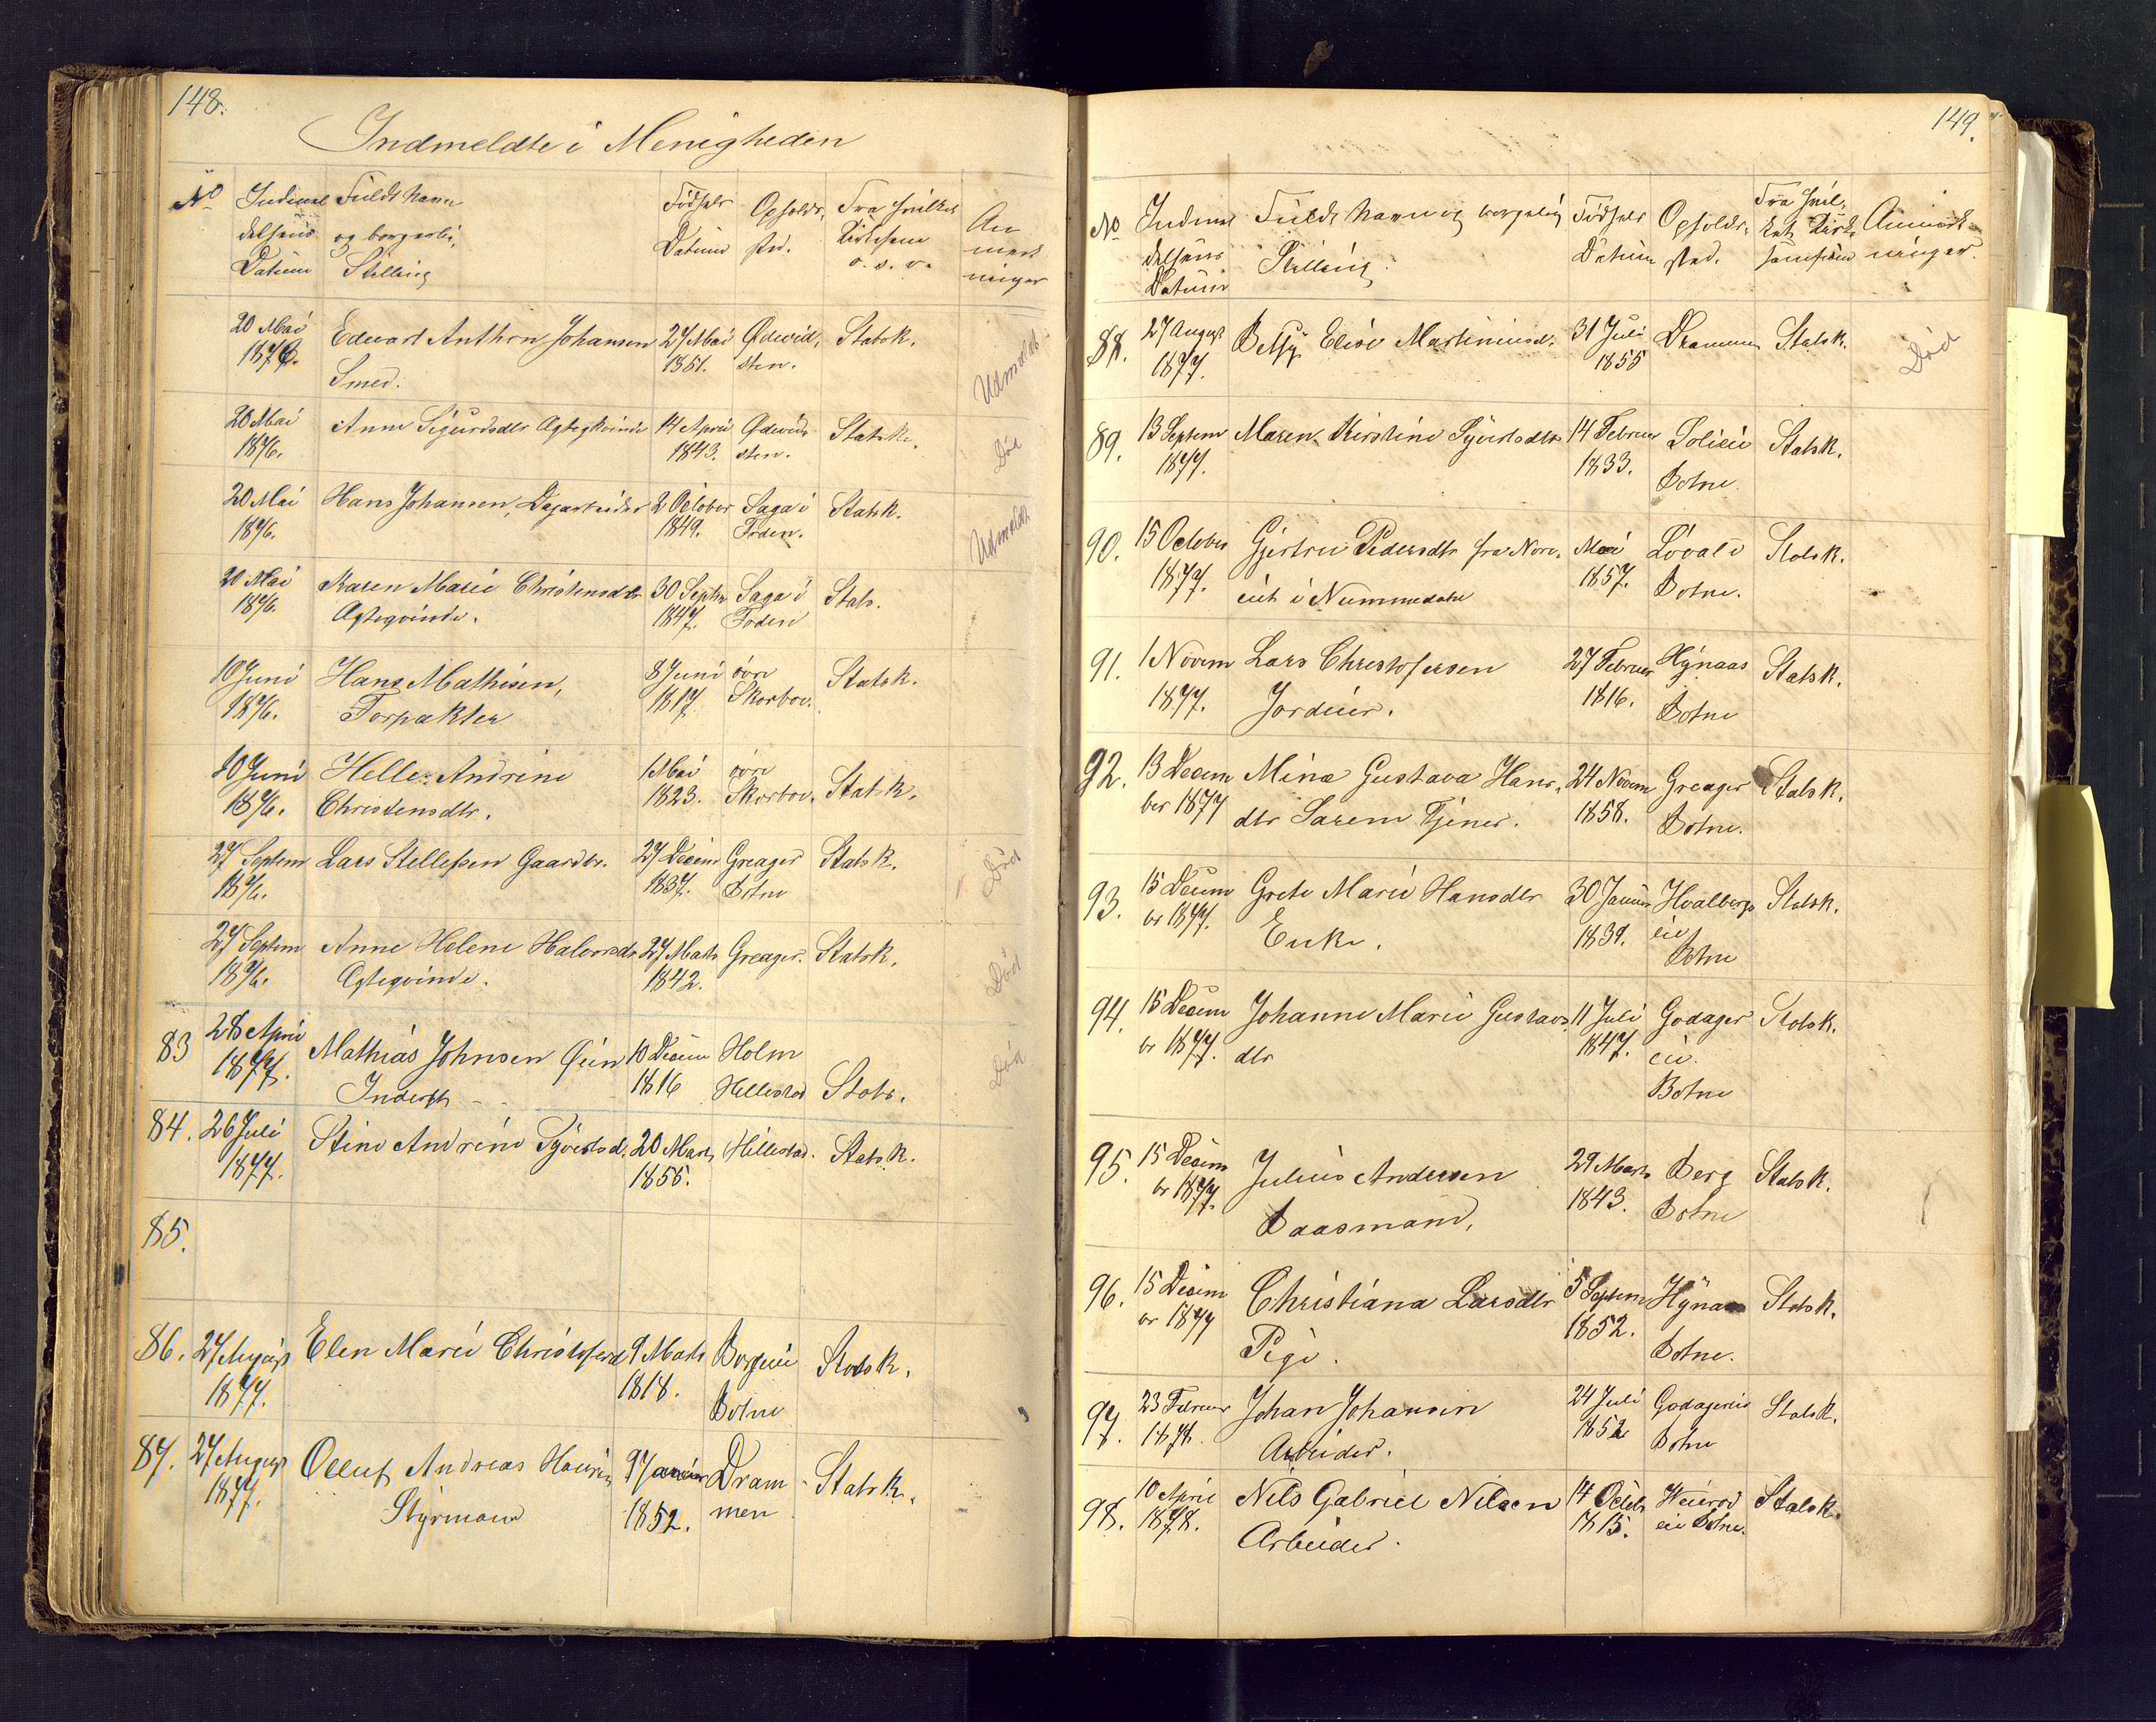 148.
Indmeldte i Menigheden
No Indmel Fuldt Navn Fødsels Opholds, Fra hvilket An
delsens og borgerlig Datum sted. Kirkesam mærk
Datum Stilling o. s. v. ninger
20 Mai Edvart Anthon Johansen 27 Mai Statsk.
1876. Smed. 1851. sten. Udmeldt
20 Mai Anne Sigurdsdtr Ægtekvinde 14 April Statsk.
1876. 1843. sten. Død
20 Mai Hans Johansen, Dagarbeider 2 October Saga i Statsk.
1876. 1849. Foden. Udmeldt
20 Mai Karen Marie Christensdtr 30 Septbr Saga i Stats.
1876. Ægteqvinde. 1847. Foden
10 Juni Hans Mathisen, 8 Juni övre Statsk.
1876. Forpakter 1817. Skorbov.
10 Juni Helle Andrine 1 Mai övre Statsk.
1876. Christensdtr. 1823. Skorbov.
27 Septem Lars Stellefsen Gaardbr. 27 Decem Greager Statsk. Død
1876. 1837. Botne
27 Septem Anne Helene Halvorsdtr 27 Marts Greager. Statsk. Død
1876. Ægteqvinde. 1842.
83 28 April Mathias Johnsen 10 Decem Holm Død
1877. Inderst 1816 Hillestad Stats.
84. 26 Juli Stine Andrine Syverlsd. 20 Marts Hillestad. Statsk.
1877. 1855.
85.
86. 27 August Elen Marie Christofersd 9 Marts Borgeeie Statsk.
1877. 1818. Botne
87. 27 August Oluf Andreas 9 Januar Dram- Statsk.
1877. Styrmand 1852. men
149.
No Indmel Fuldt Navn og borgerlig Fødsels Opholds, Fra hvil- Anmærk
delsens Stilling. Datum sted. ket Kirke ninger.
Datum samfund
88. 27 August Betsy Elise Martiniusd. 31 Juli Drammen Statsk. Død
1877. 1855
89. 13 Septem Maren Kirstine Syverlsdtr 14 Februar Solieie Statsk.
1877. 1833. Botne.
90. 15 October Gjertrud Pedersdtr fra Nore, Mai Lövald Statsk.
1877. i Nummedalen 1857. Botne.
91. 1 Novem Lars Christofersen 27 Februar Hynaas Statsk.
1877. Jordeier. 1816. Botne
92. 13 Decem Mina Gustava Hans, 24 Novem Greager Statsk.
ber 1877 dtr Sarem Tjener. 1858. Botne.
93. 15 Decem Grete Marie Hansdtr 30 Januar Hvalbergs Statsk.
br 1877. Enke. 1839. eie
Botne
94. 15 Decem Johanne Marie Gustavs 11 Juli Godager Statsk.
br 1877. dtr 1847. eie.
Botne
95. 15 Decem Julius Andersen 29 Marts Berg Statsk.
br 1877. Baasmand, 1843. Botne
96. 15 Decem Christiana Larsdtr 5 Septem Hynaas Statsk.
br 1877 Pige. 1852. Botne.
97. 23 Februar Johan Johansen 24 Juli Godagereie Statsk.
1878. Arbeider. 1852 Botne
98. 10 April Nils Gabriel Nilsen 14 Octbr Weierød Statsk.
1878. Arbeider. 1815. eie Botne.